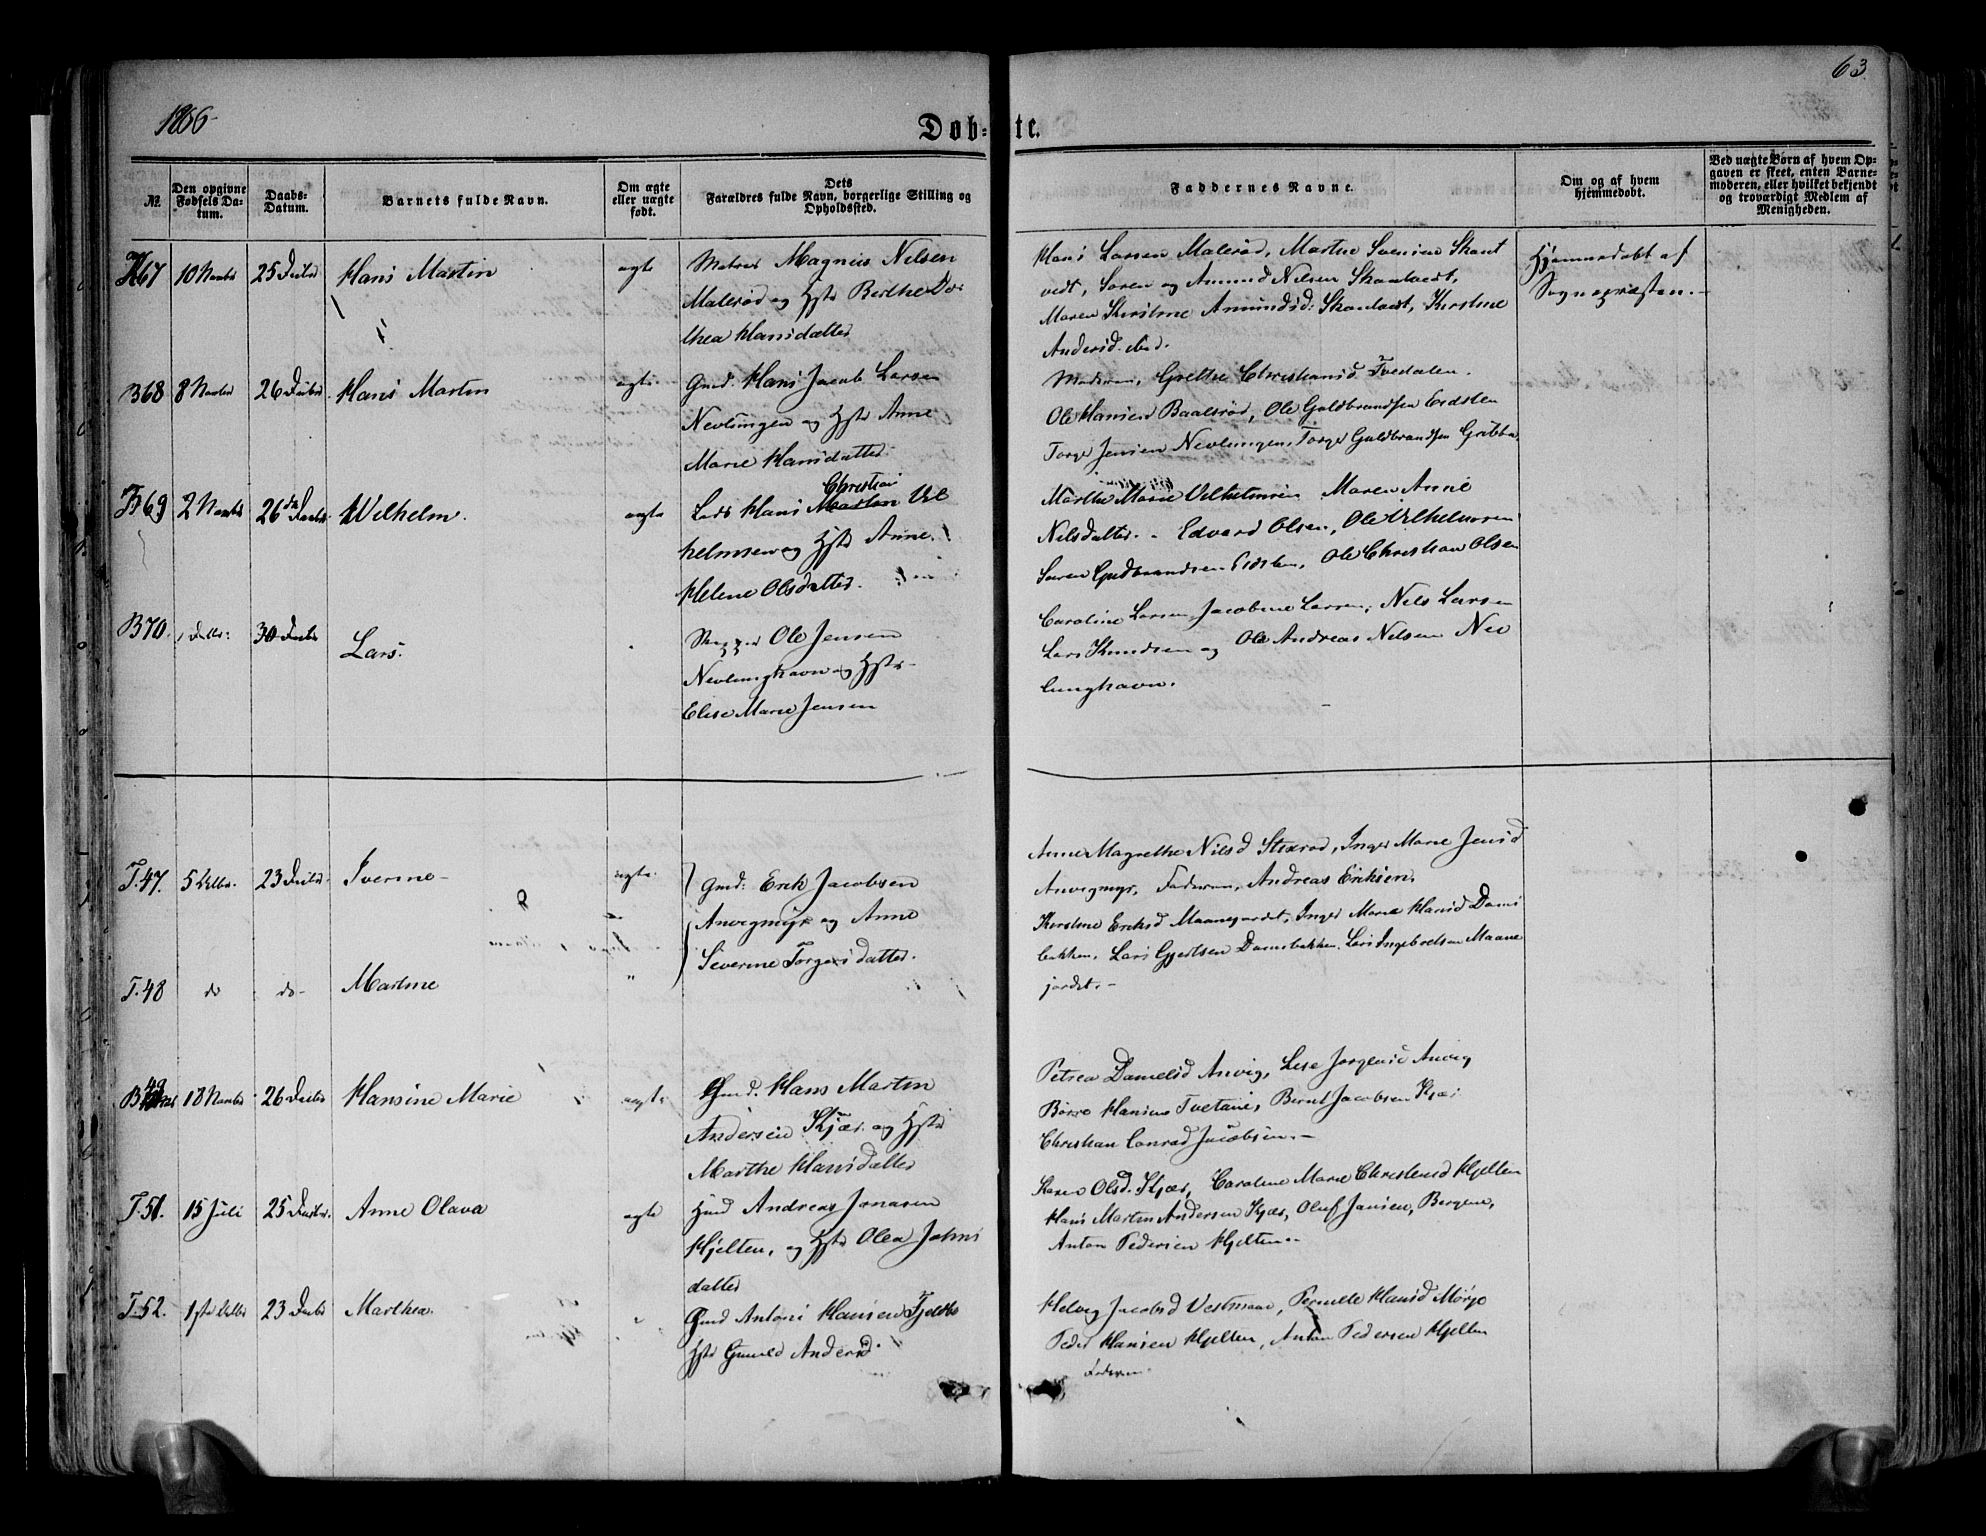 1866
63.
Døb-te.
№
Den opgivne Fødsels Datum.
Daabs-Datum.
Barnets fulde Navn.
Om ægte eller uægte født.
Dets Forældres fulde Navn, borgerlige Stilling og Opholdssted.
Faddernes Navne.
Om og af hvem hjemmedøbt.
Ved uægte Børn af hvem Opgaven er skeet, enten Barnemoderen, eller hvilket bekjendt og troværdigt Medlem af Menigheden.
67 10 Novbr 25 Decbr Hans Martin ægte Matros Magnus Nilsen
Malerød og Hstr Berthe Do
thea Hansdatter
Hans Larsen Malerød, Marthe Svenine Skaut
vedt, Søren og Amund Nilsen Skautvedt,
Maren Kirstine Amundsd: Skautvedt, Kirstine
Andersd. ibid.
Hjemmedøbt af
Sognepræsten.-
B 68 8 Novbr 26 Decbr Hans Martin ægte Gmd. Hans Jacob Larsen
Nevlungen og Hstr Anne
Marie Hansdatter
Moderen, Grethe Christiansd Tvedalen.
Ole Hansen Baalsrød, Ole Guldbrandsen Eidsten
Torger Jensen Nevlungen, Torger Guldbrandsen
69 2 Novbr 26 Decbr Wilhelm. ægte Lods Hans Christian Vil
helmsen og Hstr Anne
Helene Olsdatter.
Marthe Marie Vilhelmsen Maren Anne
Nilsdatter. - Edvard Olsen, Ole Vilhelmsen
Søren Gudbrandsen Eidsten, Ole Christian Olsen
B 70. 30 Decbr Lars. Ole Jensen
Nevlunghavn og Hstr
Elise Marie Jensen
Caroline Larsen, Jacobine Larsen, Nils Larsen
Lars Knudsen og Ole Andreas Nilsen Nev
lunghavn.
T. 47. 5 23 Decbr. Iverine ægte Gmd: Erik Jacobsen
Anvigmyr og Anne
Severine Torgersdatter.
Anne Magrethe Nilsd Stixrød, Inger Marie Jensd
Anvigmyr, Faderen, Andreas Eriksen.
T. 48 do do Martine "
Kirstine Eriksd Maanejordet, Inger Marie Hansd Dams
bakken, Lars Gjertsen Damsbakken. Lars Ingebretsen Maane
jordet.-
B 49 18 Novbr 26 Decbr Hansine Marie ægte Gmd. Hans Martin
Andersen Kjær og Hstr
Marthe Hansdatter
Petrea Danielsd Anvig, Lise Jørgensd Anvig
Børre Hansen Tvetene, Bernt Jacobsen Kjær
Christian Conrad Jacobsen.-
T. 51. 15 Juli 25 Decbr. Anne Olava ægte Hmd Andreas Jonasen
Hjelten, og Hstr Olea Johns
datter
Karen Olsd. Kjær, Caroline Marie Christensd Hjelten
Hans Martin Andersen Kjær, Oluf Jansen, Bergene,
Anton Pedersen Hjelten.-
T. 52. 1ste 23 Decbr Marthea. Gmd Antoni Hansen
Hstr Gunild Andersd.
Helvig Jacobsd Vestmaae, Pernille Hansd Mørjo
Peder Hansen Hjelten, Anton Pedersen Hjelten
Faderen